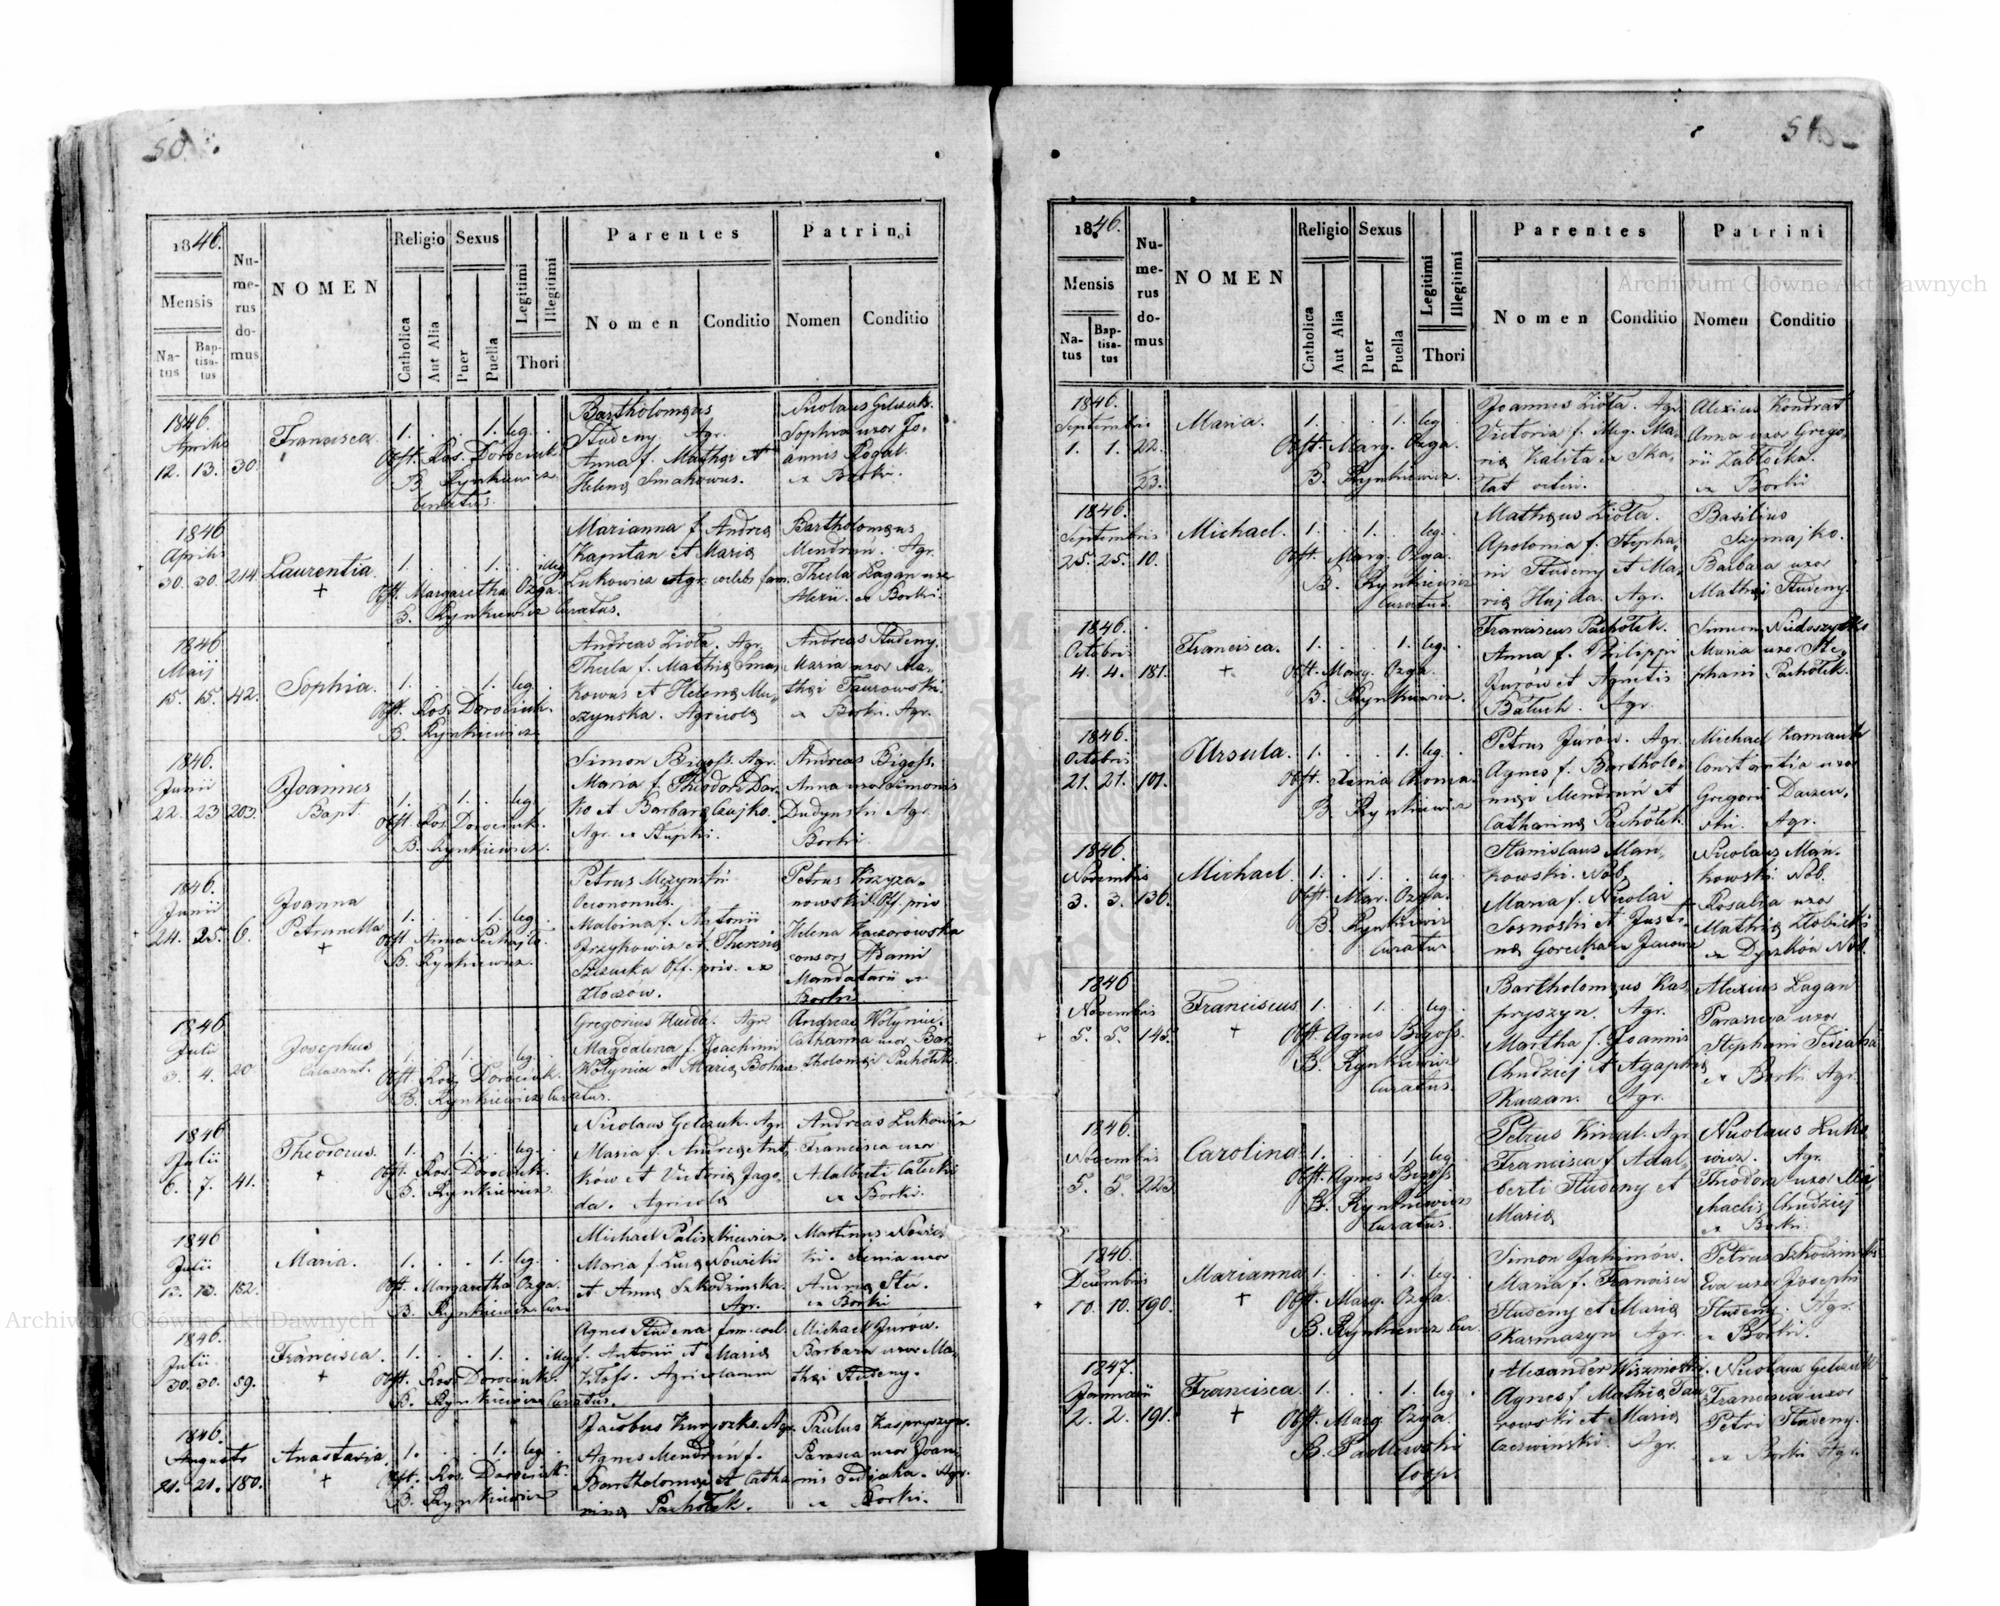 50.
1846.
Mensis
Na-
tus
Bap-
tisa-
tus
Nu-
me-
rus
do-
mus
NOMEN
Religio
Catholica
Aut Alia
Sexus
Puer
Puella
Legitimi
Illegitimi
Thori
Parentes
Nomen
Conditio
Patrini
Nomen
Conditio
1846.
Aprilis
12. 13. 30.
Francisca.
1. . . 1. leg.
Obst. Ros. Dorociuk
B. Rynkiewicz
Curatus.
Bartholomæus
Studeny Agr.
Anna f. Mathæi et
Helenæ Smakowus.
Nicolaus Gelczuk.
Sophia uxor Jo-
annis Rogal.
ex Borki.
1846
Aprilis
30. 30. 214
Laurentia.
+
1. . . 1. illeg.
Obst. Margaretha Ozga.
B. Rynkiewicz Curatus.
Marianna f. Andreæ
Kapitan et Mariæ
Lukowicz Agr. coelebs fam.
Bartholomæus
Mendruń. Agr.
Thecla Lagan uxor
Alexii. ex Borki.
1846
Maij
15. 15. 42.
Sophia.
1. . . 1. leg.
Obst. Ros. Dorociuk.
B. Rynkiewicz
Andreas Ziola. Agr.
Thecla f. Mathiæ Sma-
kowus et Helenæ Mu-
szynska. Agricolæ
Andreas Studeny.
Maria uxor Ma-
thæi Taurowski.
ex Borki. Agr.
1846.
Junii
22. 23 203.
Joannes
Bapt.
1. . 1. . leg.
Obst. Ros. Dorociuk.
B. Rynkiewicz.
Simon Bigoss. Agr.
Maria f. Theodori Dar-
ko et Barbaræ Czajko.
Agr. ex Stupki.
Andreas Bigoss.
Anna uxor Simonis
Dudynski Agr.
Borki
1846.
Junii
24. 25. 6.
Joanna
Petrunella
+
1. . . 1. leg.
Obst. Anna
B. Rynkiewicz.
Petrus Mezynski
Oeconomus.
Malvina f. Antonii
et Theresiæ
Off. priv. ex
Złoczów.
Petrus Krzyża-
nowski Off. priv
Helena Kaczorowska
consors Adami
Mandatarii ex
Borki
1846
Julii
3. 4. 20
Josephus
Calasant.
1. . 1. . leg.
Obst. Ros. Dorociuk.
B. Rynkiewicz Curatus.
Gregorius Huida. Agr.
Magdalena f. Joachimi
Wołyniec et Mariæ
Andreas Wołyniec.
Catharina uxor Bar-
tholomæi Pachołek.
1846
Julii
6. 7. 41.
Theodorus.
+
1. . 1. . leg.
Obst. Ros. Dorociuk.
B. Rynkiewicz.
Nicolaus Gelczuk. Agr.
Maria f. Andreæ Ant-
ków et Victoriæ Jago-
da. Agricolæ
Andreas Lukowicz
Francisca uxor
Adalberti
ex Borki.
1846
Julii
13. 13. 182.
Maria.
1. . . 1. leg.
Obst. Margaretha Ozga.
B. Rynkiewicz Cur.
Michael Paliszkiewicz.
Maria f. Lucæ Nowicki
et Annæ Szkodzinska.
Agr.
Martinus Nowic-
ki. Xenia uxor
Andreæ
ex Borki
1846.
Julii
30. 30. 59.
Francisca.
+
1. . . 1. . illeg.
Obst. Ros. Dorociuk.
B. Rynkiewicz Curatus.
Agnes Studena fam. coel.
f. Antonii et Mariæ
Agricolarum
Michael Jurów.
Barbara uxor Ma-
thæi Studeny.
1846.
Augusti
21. 21. 180.
Anastasia.
+
1. . . 1. leg.
Obst. Ros. Dorociuk.
B. Rynkiewicz
Jacobus Kuryszko. Agr.
Agnes Mendruń f.
Bartholomæi et Catha-
rinæ Pachołek.
Paulus Kaspryszyn.
Parasca uxor Joan-
nis Fedzaka. Agr.
ex Borki.
51.
1846.
Mensis
Na-
tus
Bap-
tisa-
tus
Nu-
me-
rus
do-
mus
NOMEN
Religio
Catholica
Aut Alia
Sexus
Puer
Puella
Legitimi
Illegitimi
Thori
Parentes
Nomen
Conditio
Patrini
Nomen
Conditio
1846.
Septembris
1. 1. 22.
23.
Maria.
1. . . 1. leg.
Obst. Marg. Ozga.
B. Rynkiewicz.
Joannes Ziola. Agr.
Victoria f. Mich. Ma-
riæ Kalita ex Ska-
łat
Alexius Kondrat
Anna uxor Grego-
rii Zablocka.
ex Borki
1846.
Septembris
25. 25. 10.
Michael.
1. . 1. . leg.
Obst. Marg. Ozga.
B. Rynkiewicz
Curatus.
Mathæus Ziola.
Apolonia f. Stepha-
ni Studeny et Ma-
riæ Hujda. Agr.
Basilius
Szymajko.
Barbara uxor
Mathæi Studeny.
1846.
Octobris
4. 4. 181.
Francisca.
+
1. . . 1. leg.
Obst. Marg. Ozga.
B. Rynkiewicz.
Franciscus Pachołek.
Anna f. Philippi
Jurów et Agnetis
Batuch. Agr.
Simeon
Maria uxor Ste-
phani Pachołek.
1846.
Octobris
21. 21. 101.
Ursula.
1. . . 1. leg.
Obst. Xenia Choma.
B. Rynkiewicz
Petrus Jurów. Agr.
Agnes f. Bartholo-
mæi Mendruń et
Catharinæ Pachołek.
Michael
Constantia uxor
Gregorii Daszew-
ski. Agr.
1846.
Novembris
3. 3. 136.
Michael
1. . 1. . leg.
Obst. Mar. Ozga.
B. Rynkiewicz
Curatus
Stanislaus Man-
kowski. Nob.
Maria f. Nicolai
Sosnoski et Justi-
næ Gorecka ex
Nicolaus Man-
kowski Nob.
Rosalia uxor
Mathiæ
ex Dyczków Nob.
1846
Novembris
5. 5. 145.
Franciscus
+
1. . 1. . leg.
Obst. Agnes Bigoss.
B. Rynkiewicz
Curatus.
Bartholomæus Kas-
pryszyn. Agr.
Martha f. Joannis
Chudziej et Agaphiæ
Kuczan. Agr.
Alexius Lagan
Parasceva uxor
Stephani Fedzaka
ex Borki Agr.
1846.
Novembris
5. 5. 223
Carolina
1. . . 1. leg.
Obst. Agnes Bigoss.
B. Rynkiewicz
Curatus.
Petrus Kinal. Agr.
Francisca f. Adal-
berti Studeny et
Mariæ
Nicolaus Luko-
wicz. Agr.
Theodora uxor Mi-
chaelis Chudziej
ex Borki.
1846.
Decembris
10. 10. 190.
Marianna
+
1. . . 1. leg.
Obst. Marg. Ozga.
B. Rynkiewicz Cur.
Simon Jakimów.
Maria f. Francisci
Studeny et Mariæ
Karmazyn Agr.
Petrus Szkodzinski
Eva uxor Josephi
Studeny. Agr.
ex Borki.
1847.
Januarii
2. 2. 191.
Francisca.
+
1. . . 1. leg.
Obst. Marg. Ozga.
B. Padlewski
Coop.
Alexander Wisznioski.
Agnes f. Mathiæ Tau-
rowski et Mariæ
Czerwiński. Agr.
Nicolaus Gelczuk
Francisca uxor
Petri Studeny.
ex Borki Agr.
Archiwum Główne Akt Dawnych
Archiwum Główne Akt Dawnych